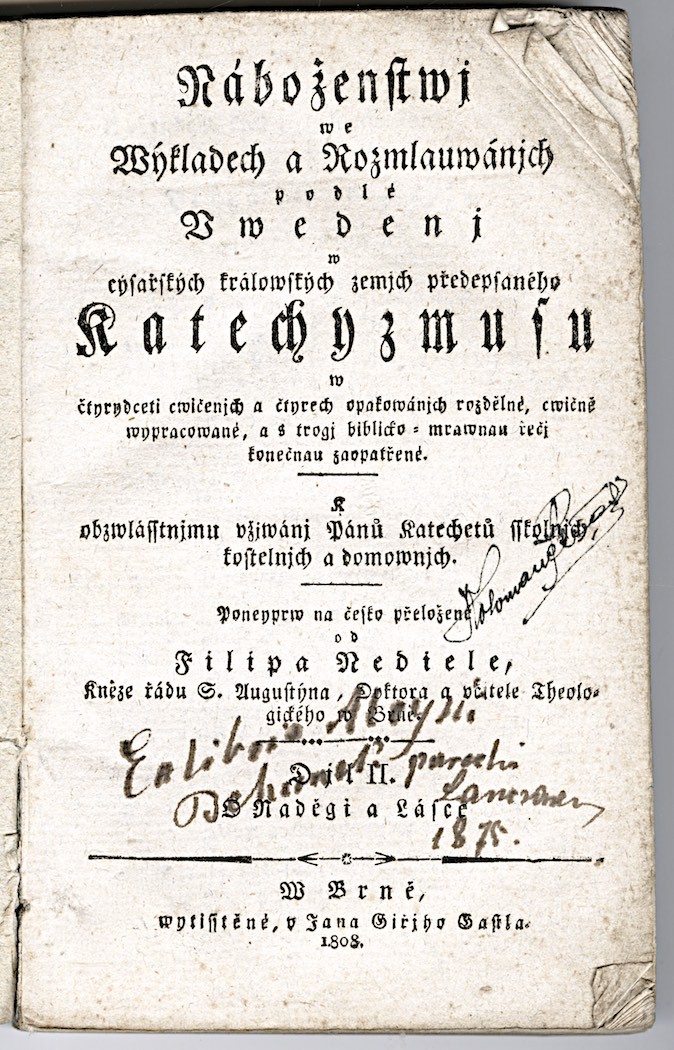 Náboženſtwj
we
Wýkladech a Rozmlauwánjch
podlé
Vwedenj
w
cýsařſkých králowſkých zemjch předepſaného
Katechyzmuſu
w
čtyrydceti cwičenjch a čtyrech opakowánjch rozdělné, cwičně
wypracowané, a s trogj biblicko = mrawnau řečj
konečnau zaopatřené.
K
obzwláſſtnjmu vžjwánj Pánů Katechetů ſſkolnjch,
koſtelnjch a domownjch.
Poneyprw na česko přeložené
od
Filipa Nediele,
Kněze řádu S. Auguſtýna, Doktora a včitele Theolo=
gického w Brně.
Ex libris
Djl II.
O Naděgi a Láſce
1875.
W Brně,
wytiſſtěné, v Jana Giřjho Gaſtla.
1808.